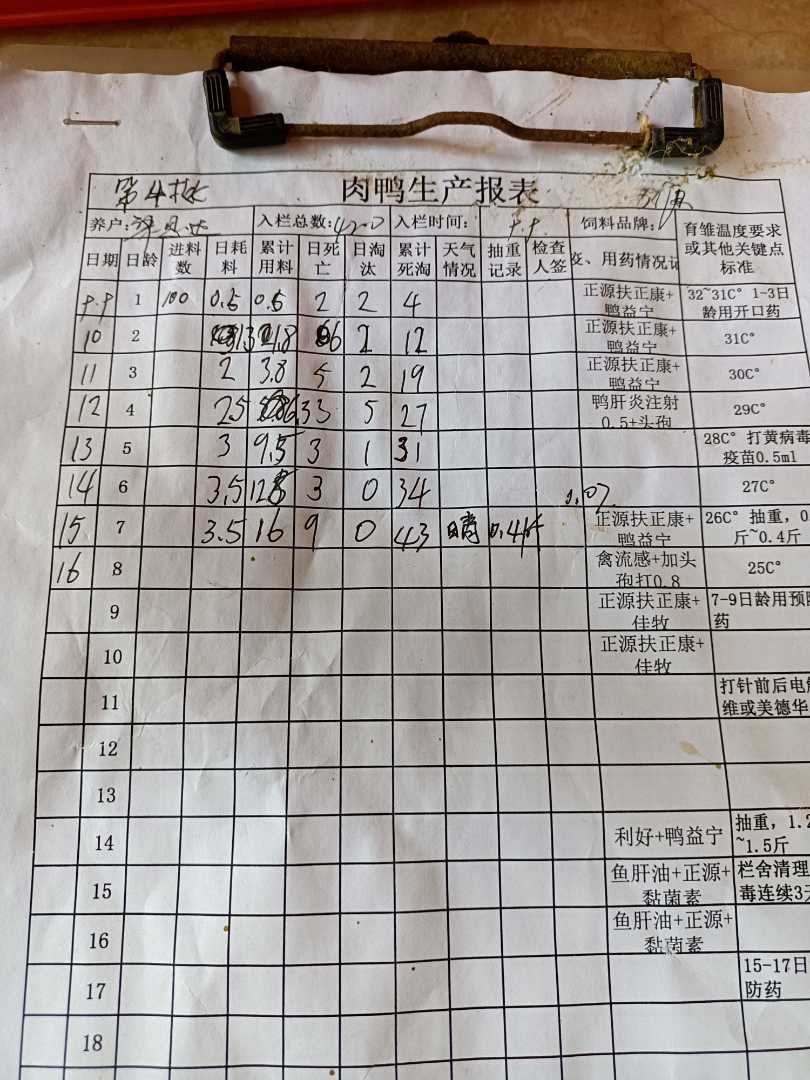 第4批 肉鸭生产报表
养户: 入栏总数: 入栏时间: 9.9 饲料品牌: 育雏温度要求或其他关键点标准
日期 日龄 进料数 日耗料 累计用料 日死亡 日淘汰 累计死淘 天气情况 抽重记录 检查人签 疫、用药情况记
9.9 1 100 0.5 0.5 2 2 4 正源扶正康+鸭益宁 32~31C° 1-3日龄用开口药
10 2 1.3 1.8 6 2 12 正源扶正康+鸭益宁 31C°
11 3 2 3.8 5 2 19 正源扶正康+鸭益宁 30C°
12 4 2.5 6.3 3 5 27 鸭肝炎注射0.5+头孢 29C°
13 5 3 9.5 3 1 31 28C° 打黄病毒疫苗0.5ml
14 6 3.5 12.5 3 0 34 27C°
15 7 3.5 16 9 0 43 晴 0.4斤 正源扶正康+鸭益宁 26C° 抽重,0.斤~0.4斤
16 8 禽流感+加头孢打0.8 25C°
9 正源扶正康+佳牧 7-9日龄用预防药
10 正源扶正康+佳牧
11 打针前后电解维或美德华
12
13
14 利好+鸭益宁 抽重,1.2~1.5斤
15 鱼肝油+正源+黏菌素 栏舍清理毒连续3天
16 鱼肝油+正源+黏菌素
17 15-17日防药
18